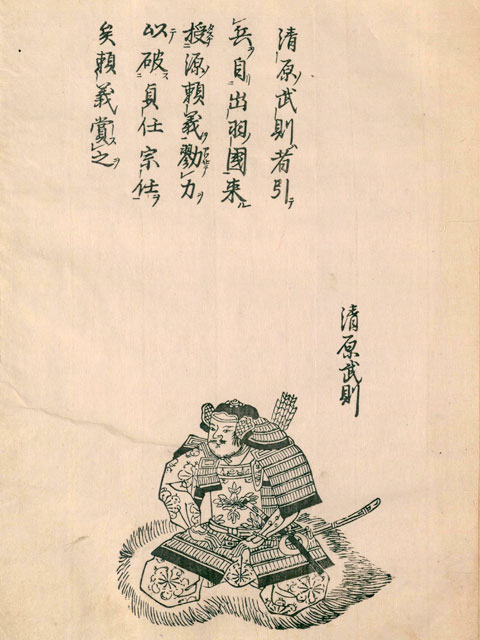 清原武則者引テ
兵ヲ自出羽國來
授源頼義勠力ヲ
以テ破貞任宗任ヲ
矣頼義賞之ヲ
清原武則